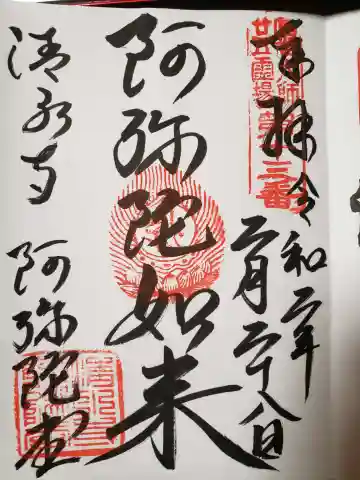 奉拝
令和二年
二月二十八日
第十三番
阿弥陀如来
清水寺
阿弥陀堂